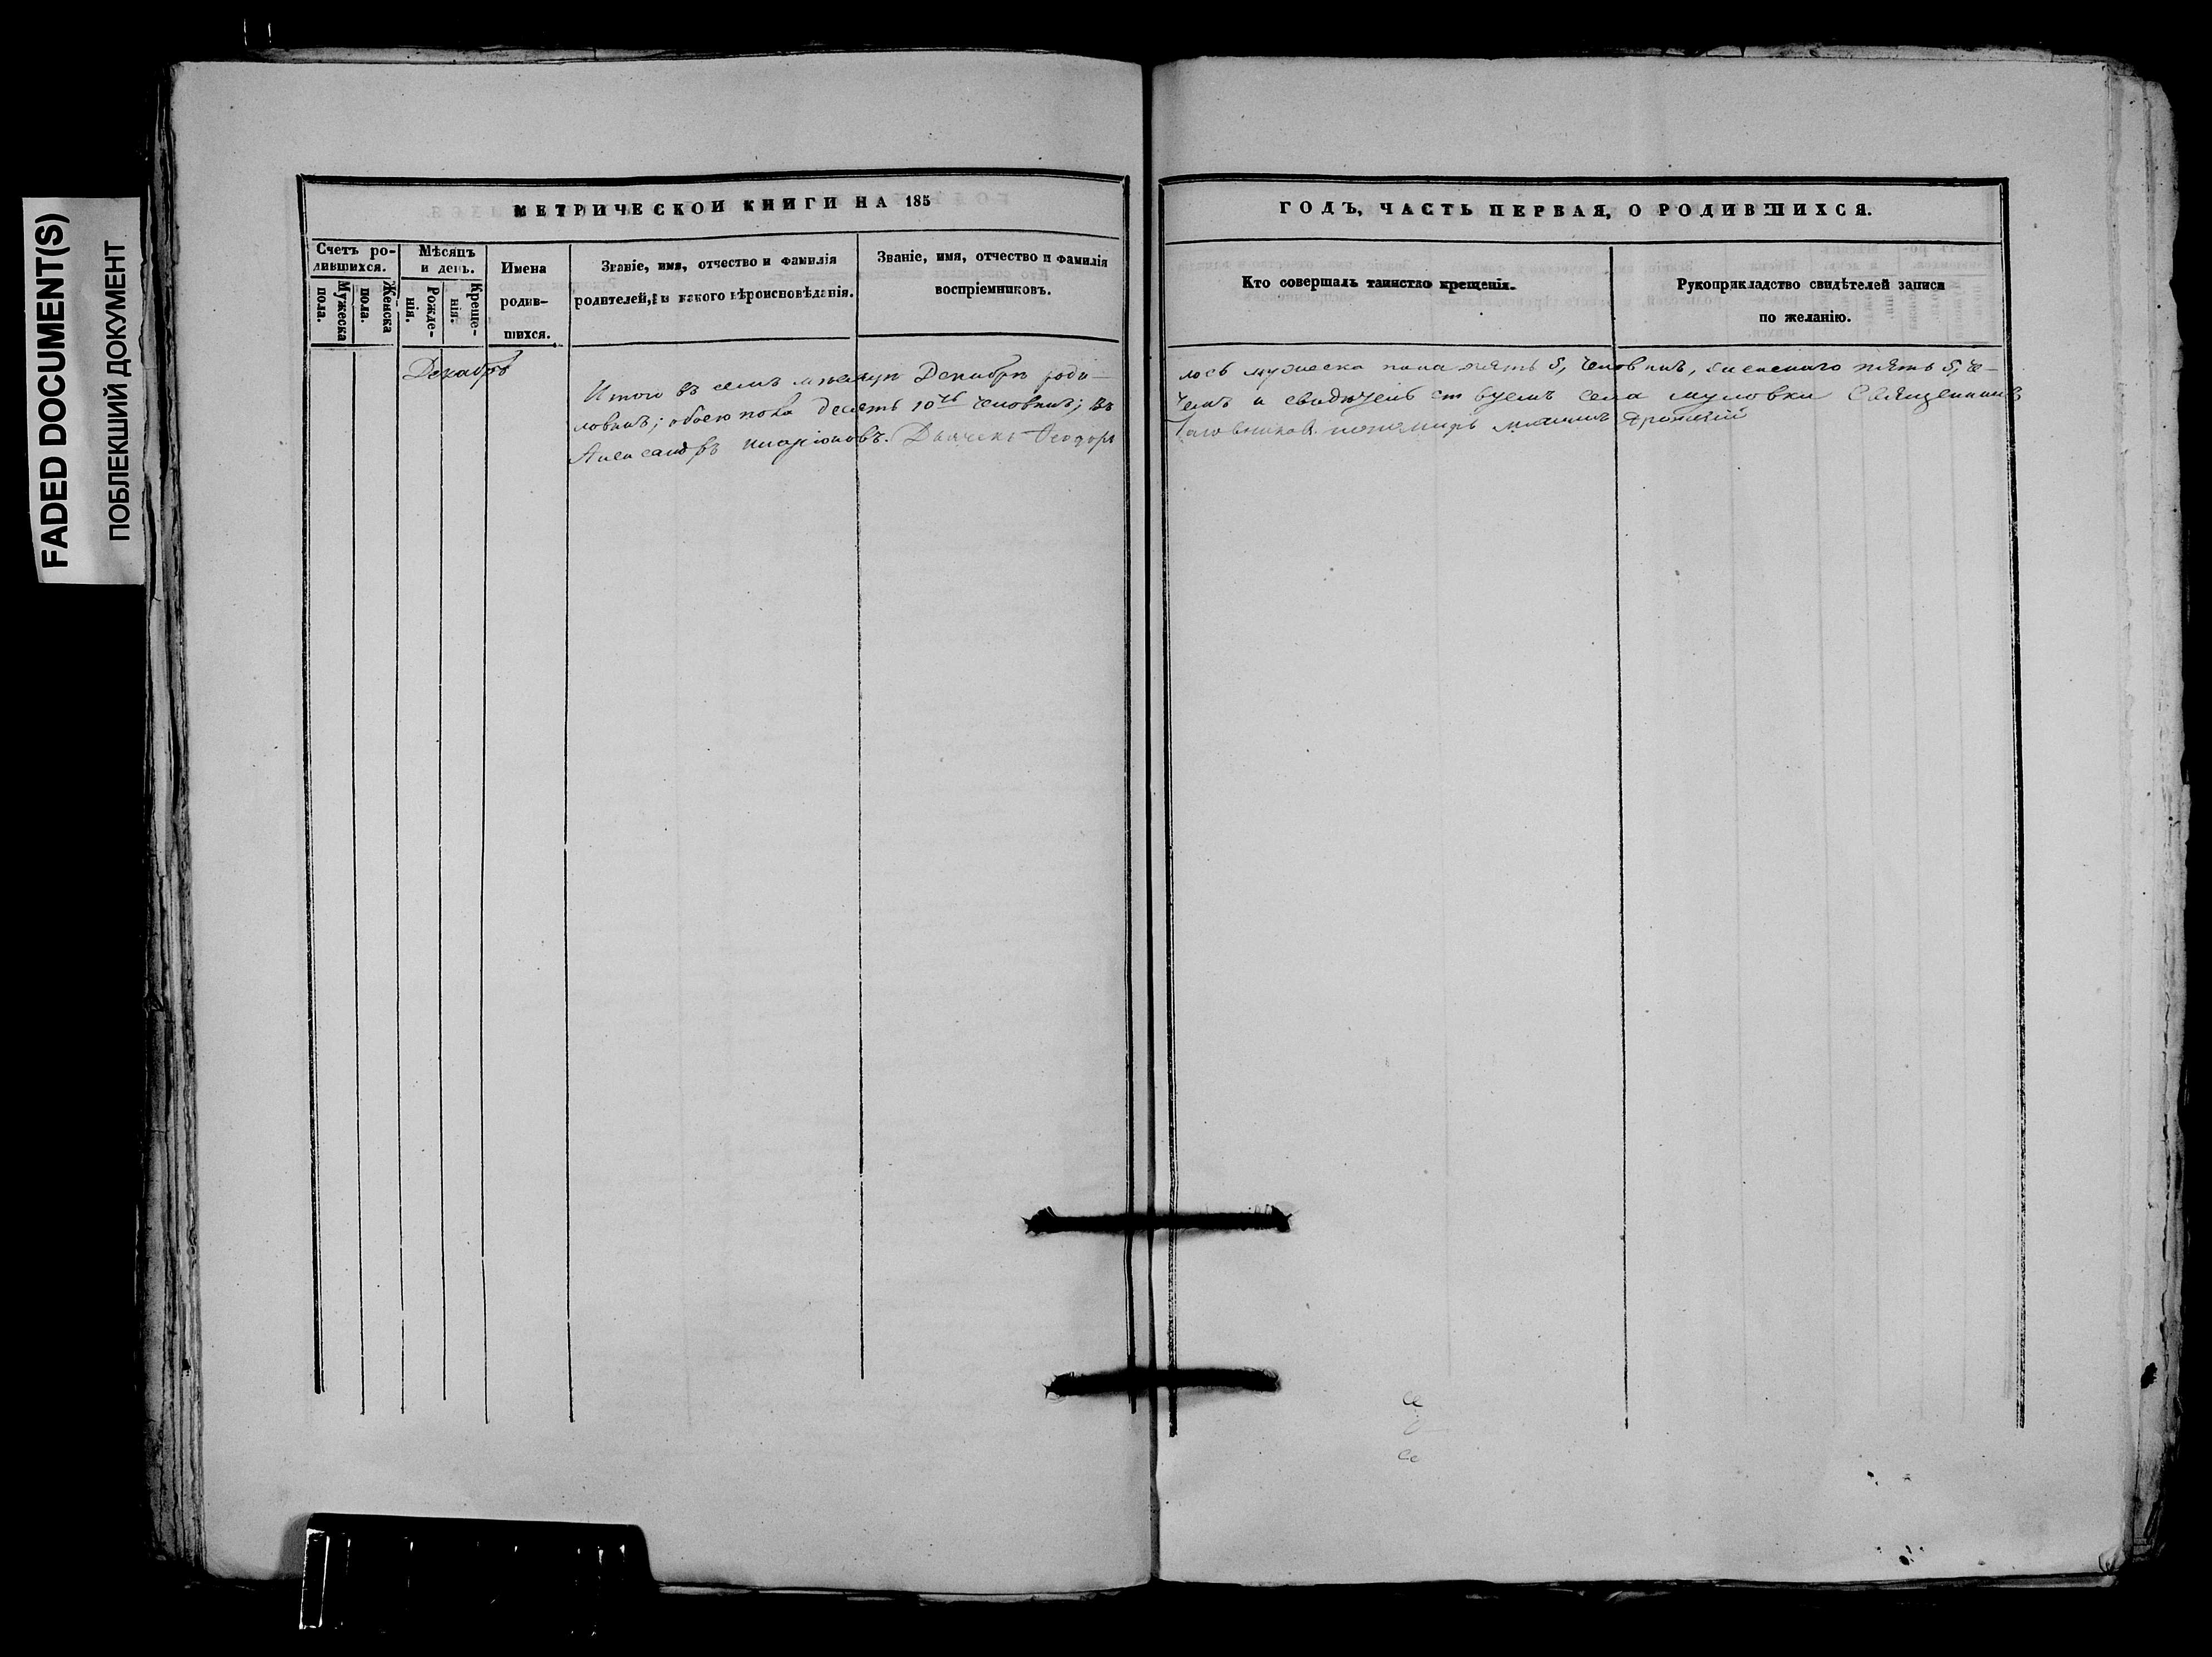 FADED DOCUMENT(S)
ПОБЛЕКШИЙ ДОКУМЕНТ
МЕТРИЧЕСКОЙ КНИГИ НА 185
Счетъ ро-
дившихся.
Мужеска
пола.
Женска
пола.
Мѣсяцъ
и день.
Рожде-
нія.
Креще-
нія.
Имена
родив-
шихся.
Званіе, имя, отчество и фамилія
родителей, и какого вѣроисповѣданія.
Званіе, имя, отчество и фамилія
воспріемниковъ.
Декабрь
Итого въ семъ мѣсяцѣ Декабрѣ роди-
ловѣкъ; обоего пола десять 10ть человѣкъ; въ
Александръ Дьячекъ Ѳеодоръ
ГОДЪ, ЧАСТЬ ПЕРВАЯ, О РОДИВШИХСЯ.
Кто совершалъ таинство крещенія.
Рукоприкладство свидѣтелей записи
по желанію.
лось мужеска пола пять 5, человѣкъ, женскаго пять 5, че-
чемъ и свидѣтельствуемъ села Священникъ